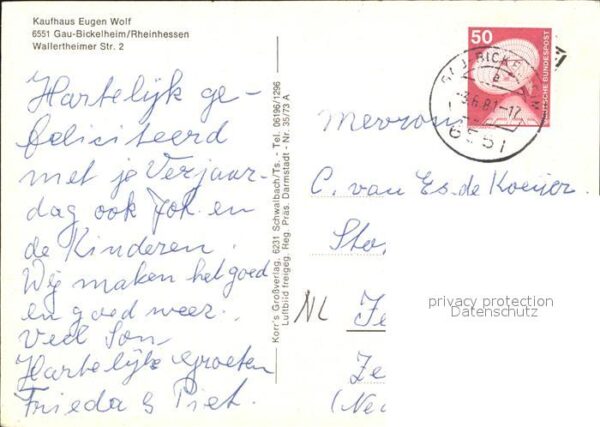 Kaufhaus Eugen Wolf
6551 Gau-Bickelheim/Rheinhessen
Wallertheimer Str. 2
Hartelijk ge-
feliciteerd
met je Verjaar-
dag ook Jok en
de Kinderen.
Wij maken het goed
en goed weer.
Veel Son
Hartelijke groeten
Frieda & Piet.
Korr's Großverlag, 6231 Schwalbach/Ts. - Tel. 06196/1296
Luftbild freigeg. Reg. Präs. Darmstadt - Nr. 35/73 A
50
DEUTSCHE BUNDESPOST
BICKE
-3.6.81-17
6551
Mevrouw
C. van Es. de Koeijer.
Sto
NL
Ze
(Ne
privacy protection
Datenschutz